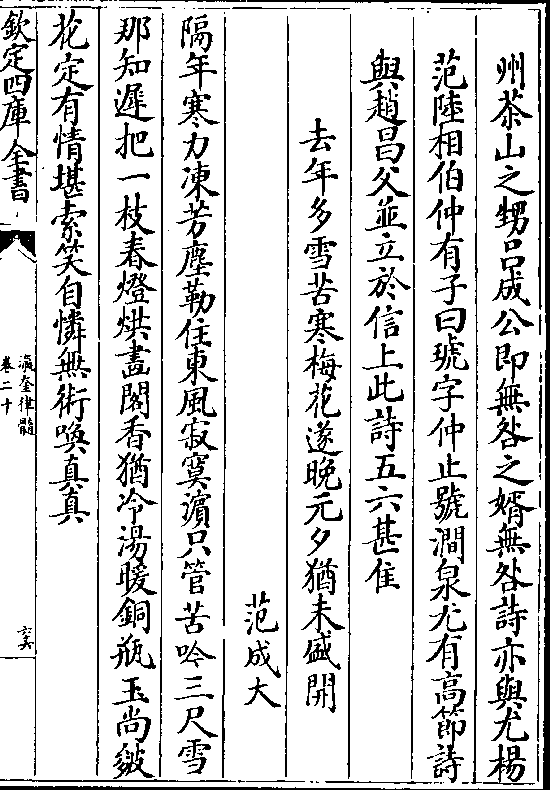 州茶山之甥吕成公即無咎之婿無咎詩亦與尤楊
范陸相伯仲有子曰琥字仲止號澗泉尤有高節詩
與趙昌父並立於信上此詩五六甚佳
去年多雪苦寒梅花遂晚元夕猶未盛開
范成大
隔年寒力凍芳塵勒住東風寂寞濵只管苦吟三尺雪
那知遲把一枝春燈烘畫閣香猶冷湯暖銅瓶玉尚皴
花定有情堪索笑自憐無術喚真真
欽定四庫全書
瀛奎律髓
卷二十
六